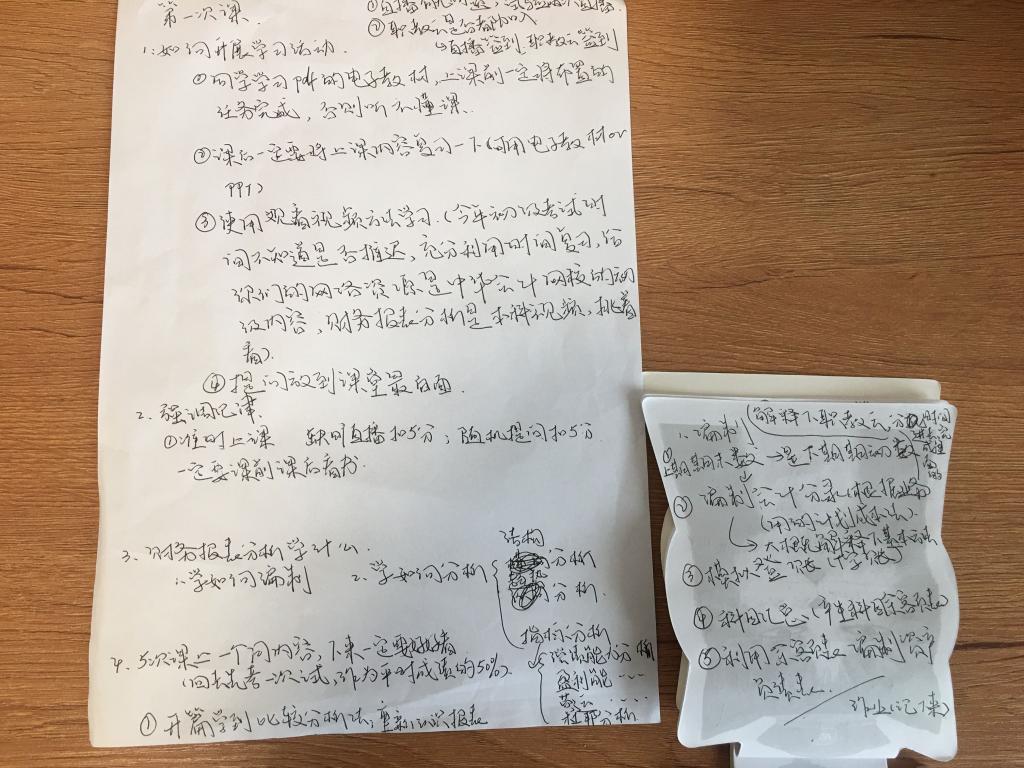 第一次课.
②职教云是否都加入
↳直播签到 职教云签到
1.如何开展学习活动.
①同学学习pdf的电子教材,上课前一定将布置的
任务完成,否则听不懂课.
②课后一定要将上课内容复习一下(利用电子教材or
PPT)
③使用观看视频方法学习.(今年初级考试时
间不知道是否推迟,充分利用时间复习,给
你们的网络资源是中华会计网校的初
级内容,财务报表分析是本科视频,挑着
看).
④提问放到课堂最后面.
2.强调纪律.
①准时上课 缺明直播扣5分;随机提问扣5分.
一定要课前课后看书.
3.财务报表分析学什么.
1.学如何编制 2.学如何分析
结构
分析
分析.
指标分析
偿债能力分析
盈利能 ····
分析
4.5次课上一个同内容,下来一定要跟着
(回去先考一次试,作为平时成绩的50%).
①开篇学到比较分析法;重新认识报表
1.编制 (解释下职教云
①上期期末数→是本期期初数
②编制会计分录(根据业务
(用的计划成本法)
↳大概解释下基本
③模拟登账(
④科目汇总(产生科目余额表)
⑤利用余额表编制资产
负债表.
作业(记下来)